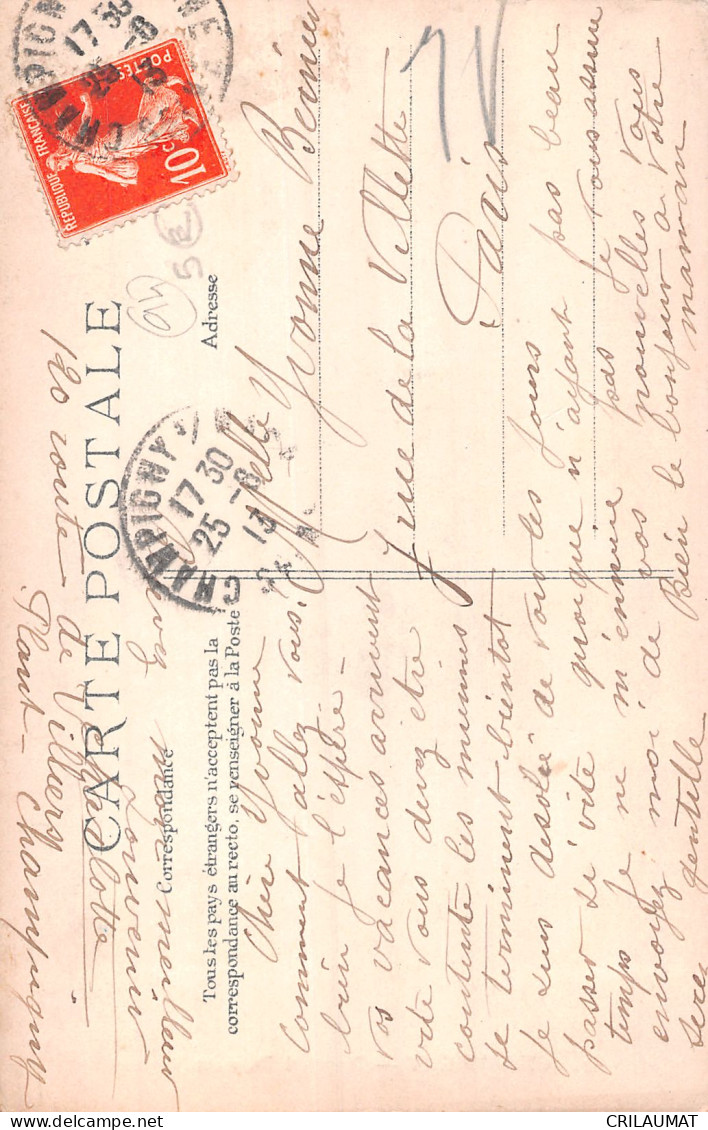 CARTE POSTALE
Tous les pays étrangers n'acceptent pas la
correspondance au recto, se renseigner à la Poste
Correspondance
Adresse
REPUBLIQUE FRANÇAISE
POSTES
10c
CHAMPIGNY
17 30
25 - 8
13
Mlle Yvonne Bernier
rue de la Villette
Paris
Chère Yvonne
Comment allez vous,
bien je l'espère -
vos vacances arrivent
vite vous devez être
contente les miennes
se terminent bientôt
Je suis désolée de voir les jours
passer si vite quoique n'ayant pas beau
temps je ne m'ennuie pas je vous assure
envoyez moi de vos nouvelles vous
serez gentille Bien le bonjour à votre
maman
mon meilleur
souvenir
Charlotte
120 route de Villiers
Plant - Champigny
CRILAUMAT